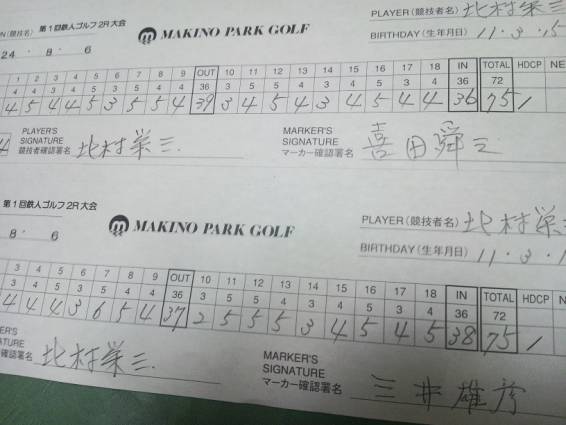 N(競技名) 第1回鉄人ゴルフ2R大会 MAKINO PARK GOLF PLAYER(競技者名) 北村栄三
24・8・6 BIRTHDAY(生年月日) 11・3・15
1 2 3 4 5 6 7 8 9 OUT 10 11 12 13 14 15 16 17 18 IN TOTAL HDCP NE
36 36 72
4 5 4 4 5 3 5 5 4 39 3 4 5 4 3 4 5 4 4 36 75
PLAYER'S SIGNATURE 競技者確認署名 北村栄三 MARKER'S SIGNATURE マーカー確認署名 喜田舜三
第1回鉄人ゴルフ2R大会 MAKINO PARK GOLF PLAYER(競技者名) 北村栄
8・6 BIRTHDAY(生年月日) 11・3・1
3 4 5 6 7 8 9 OUT 10 11 12 13 14 15 16 17 18 IN TOTAL HDCP
36 3 5 4 5 3 4 5 3 4 36 72
4 4 4 3 6 5 4 37 2 5 5 5 3 4 5 4 5 38 75
YER'S SIGNATURE 確認署名 北村栄三 MARKER'S SIGNATURE マーカー確認署名 三井雄彦